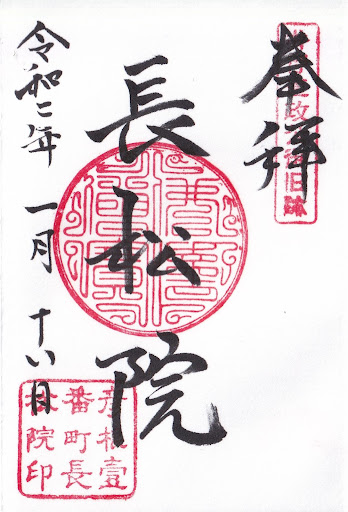 奉拝
政 旧跡
長松院
令和二年 一月 十八日
彦根壹
番町長
松院印